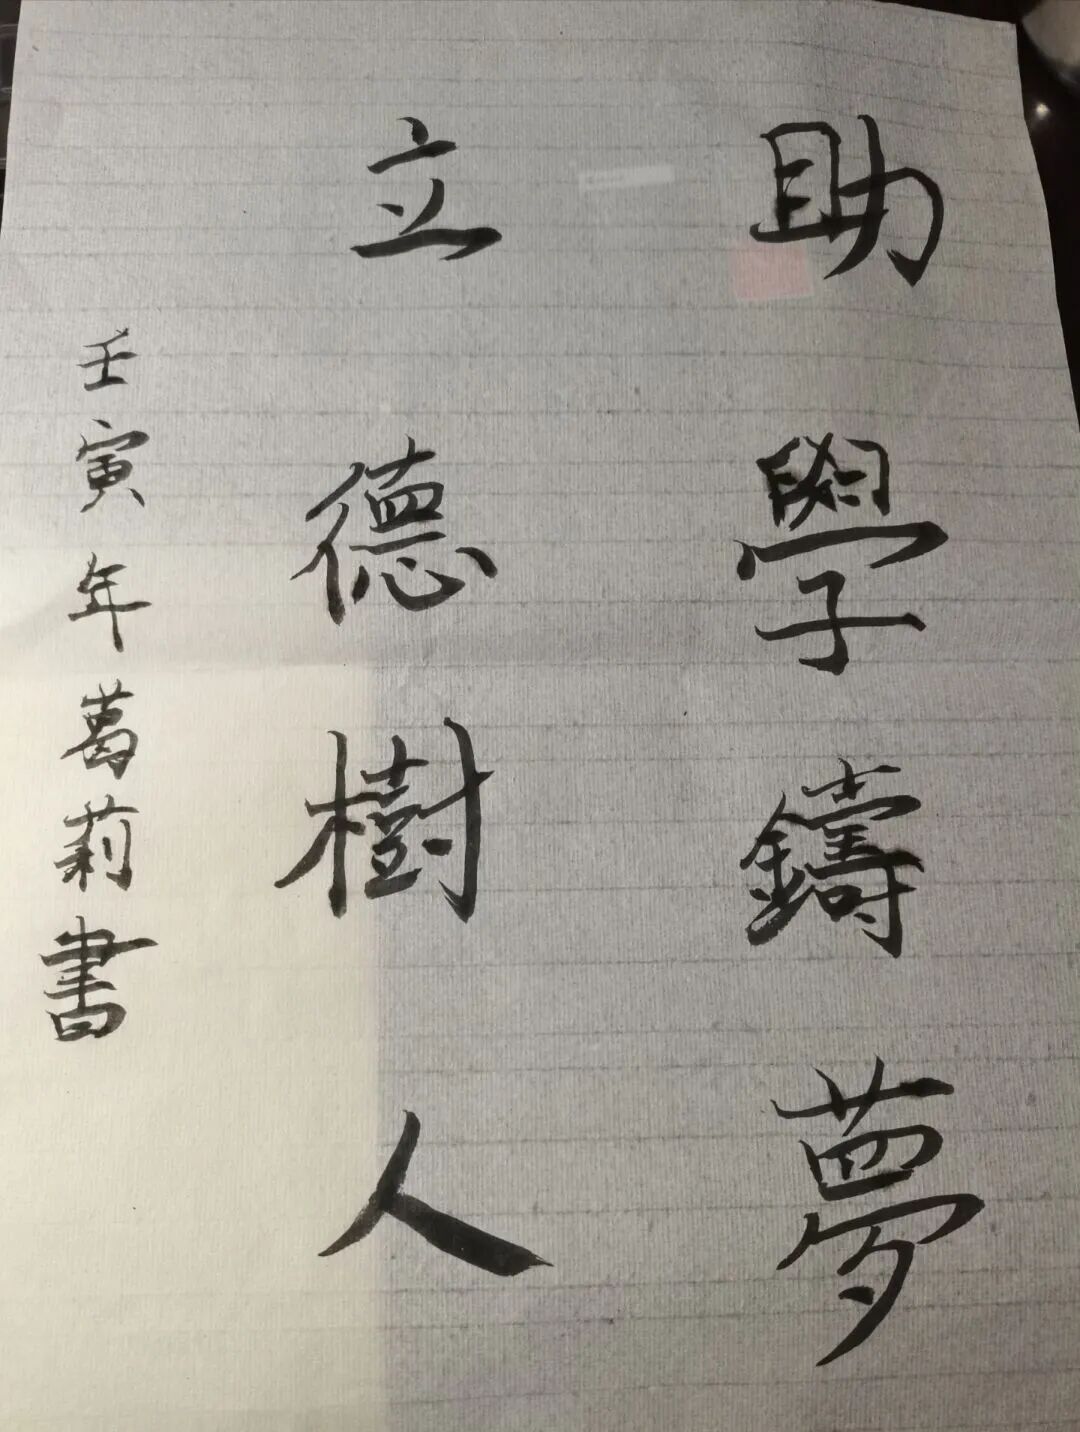 助學鑄夢
立德樹人
壬寅年葛莉書